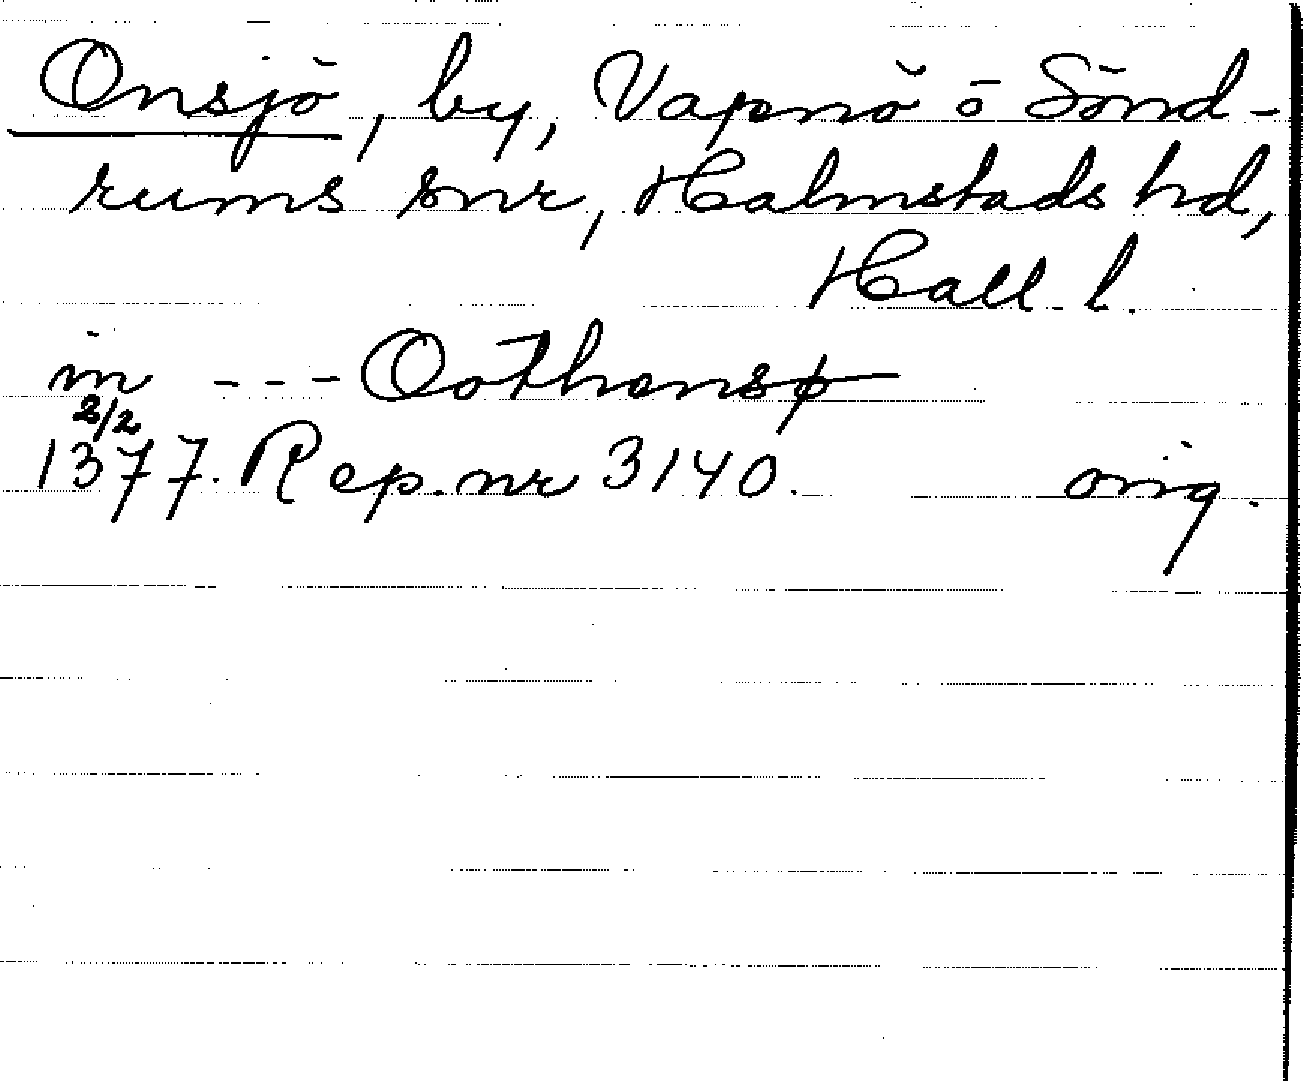 Onsjö, by, Vapnö o Sönd-
rums snr, Halmstads hd,
Hall. l.
in --- Oothensø
2/2
1377. Rep. nr 3140. orig.